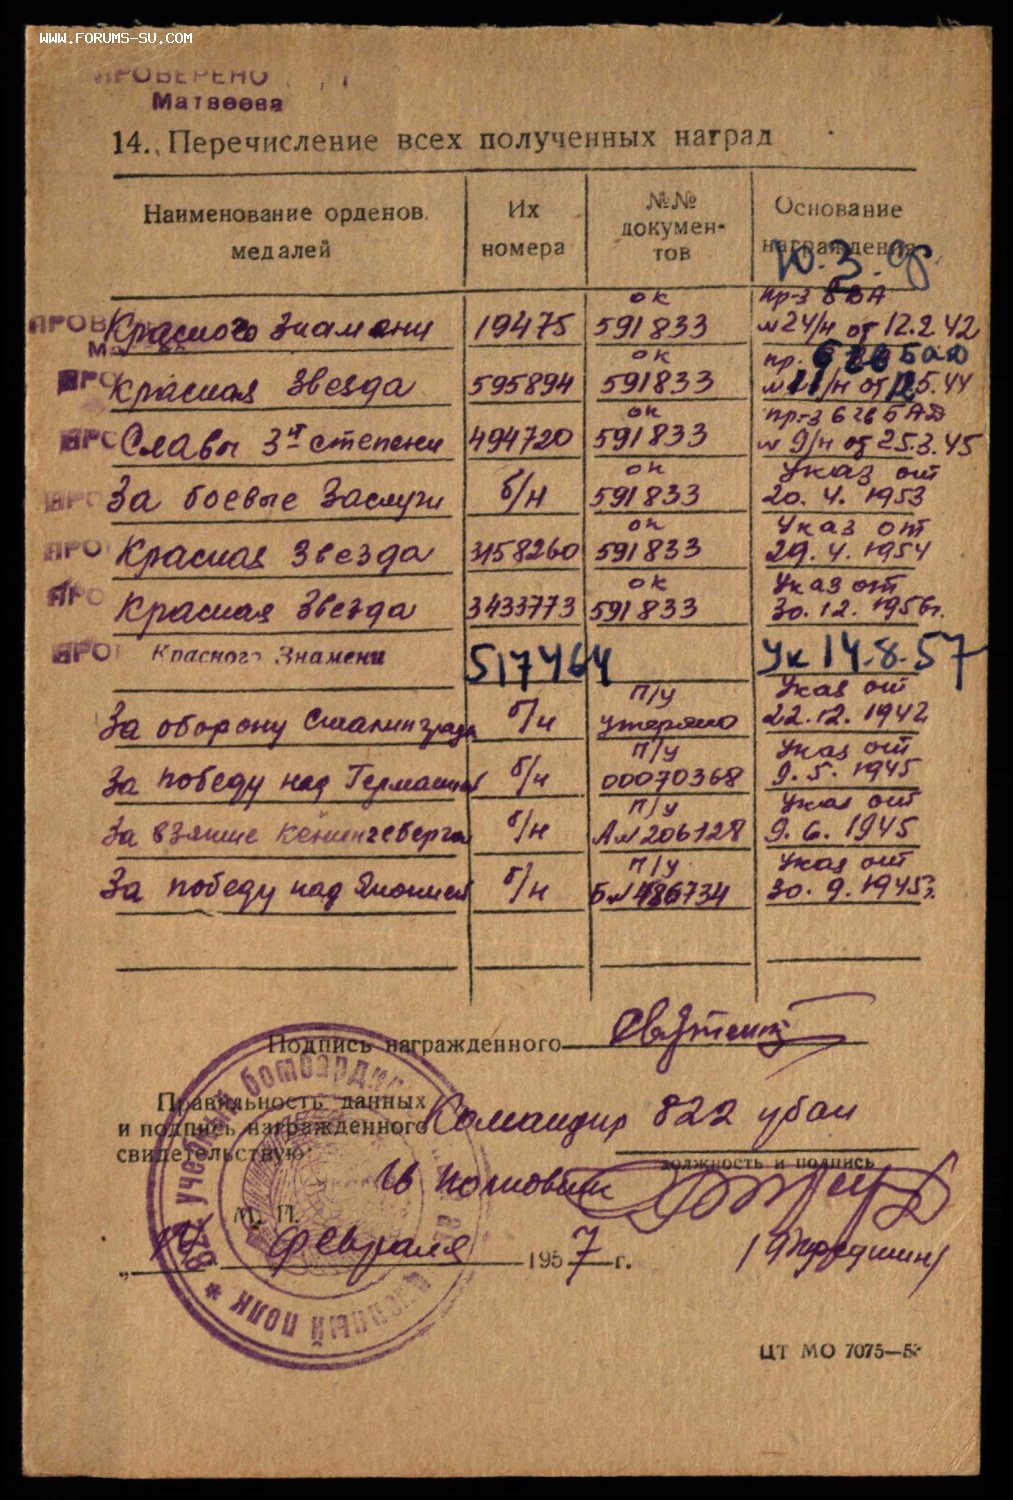 WWW.FORUMS-SU.COM
ПРОВЕРЕНО
Матвеева
14. Перечисление всех полученных наград
Наименование орденов, медалей
Их номера
№№ документов
Основание награждения
Ю.З.
Красного Знамени 19475 ок 591833 пр-з 8 ВА №24/н от 12.2.42
Красная Звезда 595894 ок 591833 пр. 6 гв БАД от 5.44
Славы 3й степени 494720 ок 591833 пр-з 6 гв БАД № 9/н от 25.3.45
За боевые Заслуги б/н ок 591833 Указ от 20.4.1953
Красная Звезда 3158260 ок 591833 Указ от 29.4.1954
Красная Звезда 3433773 ок 591833 Указ от 30.12.1956г.
Красного Знамени 517464 Ук 14.8.57
За оборону Сталинграда б/н п/у утеряно Указ от 22.12.1942
За победу над Германией б/н п/у 00070368 Указ от 9.5.1945
За взятие Кенингсберга б/н п/у А № 206128 Указ от 9.6.1945
За победу над Японией б/н п/у Б № 486734 Указ от 30.9.1945г.
Подпись награжденного
Правильность данных
и подпись награжденного
свидетельствую:
Командир 822 убап
должность и подпись
гв полковник
М. П.
февраля 1957 г.
822 учебный бомбардир полк
ЦТ МО 7075—5